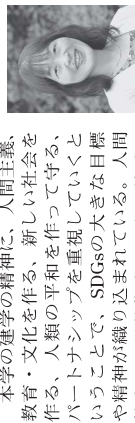 本学の建学の精神に、人間主義、
教育・文化を作る、新しい社会を
作る、人類の平和を作って守る、
パートナシップを重視していくと
いうことで、SDGsの大きな目標
や精神が織り込まれている。人間